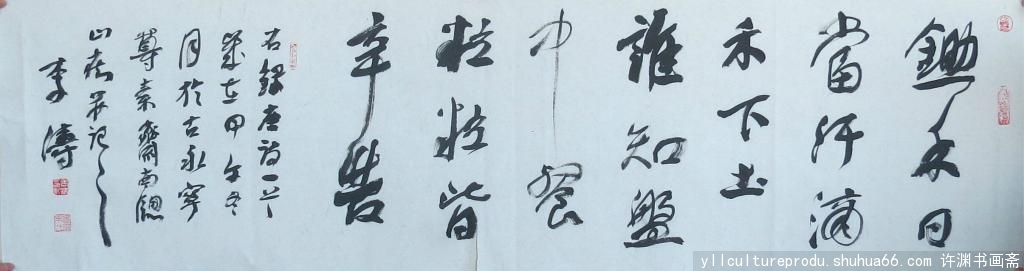 鋤禾日
當汗滴
禾下土
誰知盤
中餐
粒粒皆
辛苦
右錄唐詩一首
歲在甲午冬
月於古永寧
尊素齋南窗
山 并記之
李濤
yllcultureprodu.shuhua66.com 许渊书画斋